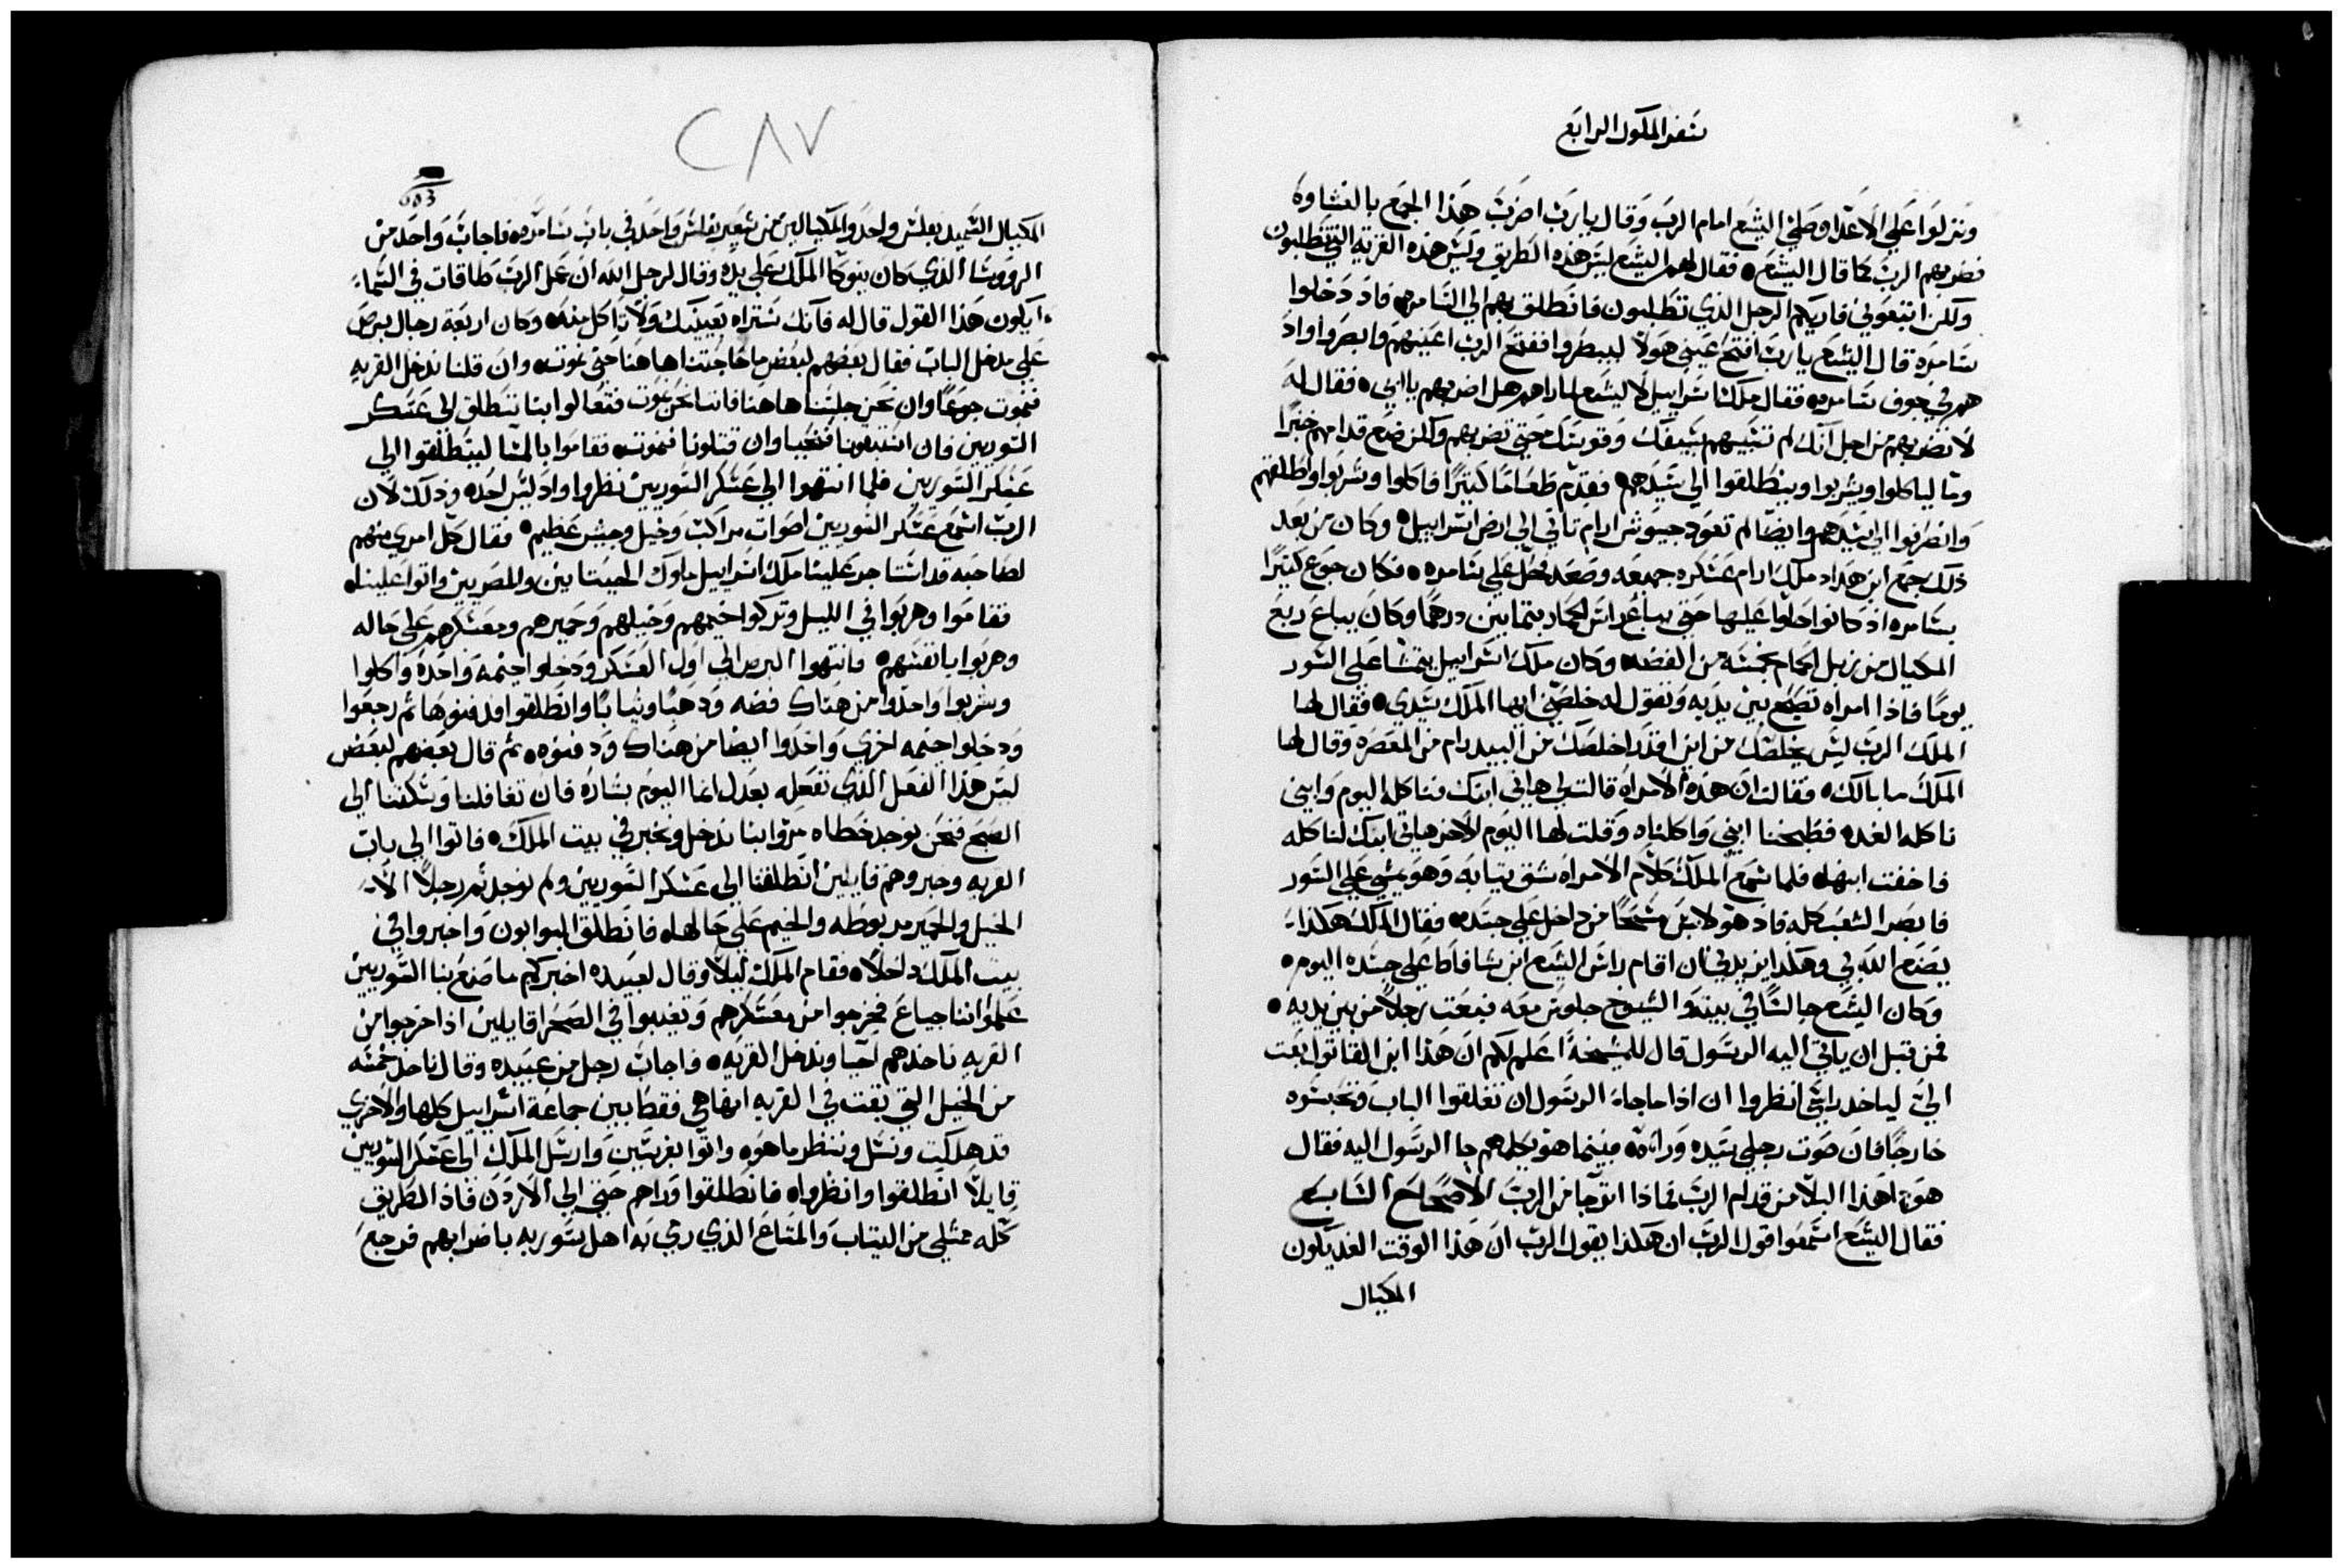 سفر الملوك الرابع
ونزلوا علي الاعدا وصلي اليشع امام الرب وقال يا رب اضرب هذا الجمع بالغشاوه
فضربهم الرب كما قال اليشع • فقال لهم اليشع ليس هذه الطريق وليس هذه القريه التي تطلبون
ولكن اتبعوني فاريكم الرجل الذي تطلبون فانطلق بهم الي السامره فاد دخلوا
سامره قال اليشع يا رب افتح عيني هولا ليبصروا ففتح الرب اعينهم وابصروا واد
هم في جوف سامره • فقال ملك اسراييل لاليشع لما راهم هل اضربهم يا ابي • فقال له
لا تضربهم من اجل انك لم تسبيهم بسيفك وقوسك حتي تضربهم ولكن ضع قدامهم خبزا
وما لياكلوا ويشربوا وينطلقوا الي سيدهم • فقدم طعاما كتيرا فاكلوا وشربوا واطلقهم
وانصرفوا الي سيدهم وايضا لم تعود جيوش ارام تاتي الي ارض اسراييل • وكان من بعد
ذلك جمع ابن هداد ملك ارام عسكره جميعه وصعد نحل علي سامره • فكان جوع كتيرا
بسامره اذ كانوا حلوا عليها حتي يباع راس الحمار بتمانين درهما وكان يباع ربع
المكيال من زبل الحمام بخمسه من الفضه • وكان ملك اسراييل يتمشا علي السور
يوما فاذا امراه تصيح بين يديه وتقول له خلصني ايها الملك سيدي • فقال لها
الملك الرب ليس يخلصك من اين اقدر اخلصك من البيدر ام من المعصره وقال لها
الملك ما بالك • فقالت ان هذه الامراه قالت لي هاتي ابنك فناكله اليوم وابني
ناكله الغد • فطبخنا ابني واكلناه وقلت لها اليوم الاخر هاتي ابنك لناكله
فاخفت ابنها • فلما سمع الملك كلام الامراه شق تيابه وهو يمشي علي السور
فابصر الشعب كله فاد هو لابس مسحا من داخل علي جسده • فقال الملك هكذا
يصنع الله بي وهكذا يزيدني ان اقام راس اليشع ابن شافاط علي جسده اليوم •
وكان اليشع جالسا في بيته والشيوخ جلوس معه فبعت رجلا من بين يديه •
فمن قبل ان ياتي اليه الرسول قال للمشيخه اعلمكم ان هذا ابن القاتول بعت
الي لياخد راسي انظروا ان اذا ما جاء الرسول ان تغلقوا الباب وتحبسوه
خارجا فان صوت رجلي سيده وراه • فبينما هو يكلمهم جا الرسول اليه فقال
هودا هذا البلا من قدام الرب فماذا اترجا من الرب الاصحاح السابع
فقال اليشع اسمعوا قول الرب ان هكذا يقول الرب ان هذا الوقت الغد يكون
المكيال
٢٨٧
المكيال السميد بفلس واحد والمكيالين من شعير بفلس واحد في باب سامره فاجاب واحد من
الرووسا الذي كان يتوكا الملك علي يده وقال لرجل الله ان عمل الرب طاقات في السماء
ايكون هذا القول قال له فانك ستراه بعينيك ولا تاكل منه • وكان اربعة رجال برص
علي مدخل الباب فقال بعضهم لبعض ما حاجتنا هاهنا حتي نموت • وان قلنا ندخل القريه
فنموت جوعا وان نحن جلسنا هاهنا فاننا نحن نموت فتعالوا بنا ننطلق الي عسكر
السوريين فان استبقونا فنحيا وان قتلونا فنموت • فقاموا بالمسا لينطلقوا الي
عسكر السوريين فلما انتهوا الي عسكر السوريين نظروا واد ليس احد • وذلك لان
الرب اسمع عسكر السوريين اصوات مراكب وخيل وجيش عظيم • فقال كل امري منهم
لصاحبه قد استاجر علينا ملك اسراييل ملوك الحيتايين والمصريين واتوا علينا •
فقاموا وهربوا في الليل وتركوا خيمهم وخيلهم وحميرهم ومعسكرهم علي حاله
وهربوا بانفسهم • فانتهوا البرص الي اول العسكر ودخلوا خيمه واحده واكلوا
وشربوا واخدوا من هناك فضه ودهبا وتيابا وانطلقوا فدفنوها تم رجعوا
ودخلوا خيمه اخري واخدوا ايضا من هناك ودفنوه • تم قال بعضهم لبعض
ليس هذا الفعل الذي نفعله بعدل انما اليوم بشاره فان تغافلنا وسكتنا الي
الصبح فنحن نوجد خطاه مروا بنا ندخل ونخبر في بيت الملك • فاتوا الي باب
القريه وخبروهم قايلين انطلقنا الي عسكر السوريين ولم نوجد تم رجلا الا
الخيل والحمير مربوطه والخيم علي حالها • فانطلق البوابون واخبروا في
بيت الملك داخلا • فقام الملك ليلا وقال لعبيده اخبركم ما صنع بنا السوريين
علموا اننا جياع فخرجوا من معسكرهم وتغيبوا في الصحرا قايلين اذا خرجوا من
القريه ناخدهم احيا وندخل القريه • واجاب رجل من عبيده وقال ناخد خمسه
من الخيل التي بقت في القريه انها هي فقط بين جماعة اسراييل كلها والاخري
قد هلكت ونرسل وننظر ما هو • واتوا بفرسين وارسل الملك الي عسكر السوريين
قايلا انطلقوا وانظروا • فانطلقوا وراهم حتي الي الاردن فاذا الطريق
كله ممتلي من التياب والمتاع الذي رمي به اهل سوريه باضرابهم فرجع